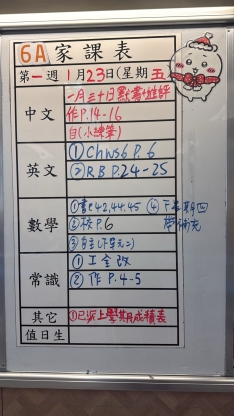 6A 家課表
第一週 1月23日(星期五)
中文
一月三十日默書+進評
作P.14-16
自(小練筆)
英文
① Chws6 P.6
② R B P.24-25
數學
①書P.42,44,45 ④下星期四
②校 P.6 帶補充
③自主(下單元二)
常識
① 工全改
② 作 P.4-5
其它
①已派上學期成績表
值日生